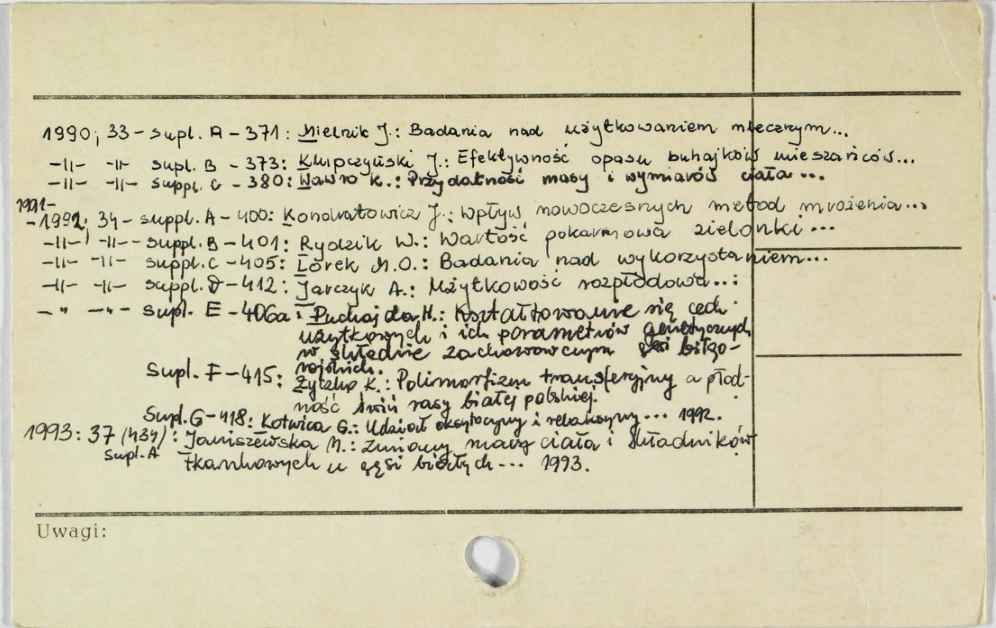 1990; 33 - supl. A - 371: Mielnik J.: Badania nad użytkowaniem mlecznym...
-II- -II- supl. B - 373: Kłupczyński J.: Efektywność opasu buhajków mieszańców...
-II- -II- suppl. C - 380: Wawro K.: Przydatność masy i wymiarów ciała...
1991-
-1992; 34 - suppl. A - 400: Kondratowicz J.: Wpływ nowoczesnych metod mrożenia...
-II- -II- suppl. B - 401: Rydzik W.: Wartość pokarmowa zielonki...
-II- -II- suppl. C - 405: Lorek M.O.: Badania nad wykorzystaniem...
-II- -II- suppl. D - 412: Jarczyk A.: Użytkowość rozpłodowa...
- " - - " - supl. E - 406a: Puchajda H.: Kształtowanie się cech
użytkowych i ich parametrów genetycznych
w stadzie zachowawczym gęsi biłgo-
rajskich.
Supl. F - 415: Życzko K.: Polimorfizm transferyny a płod-
ność świń rasy białej polskiej.
Supl. G - 418: Kotwica G.: Udział oksytocyny i relaksyny... 1992.
1993: 37 (434): Janiszewska M.: Zmiany masy ciała i składników
Supl. A tkankowych u gęsi białych... 1993.
Uwagi: